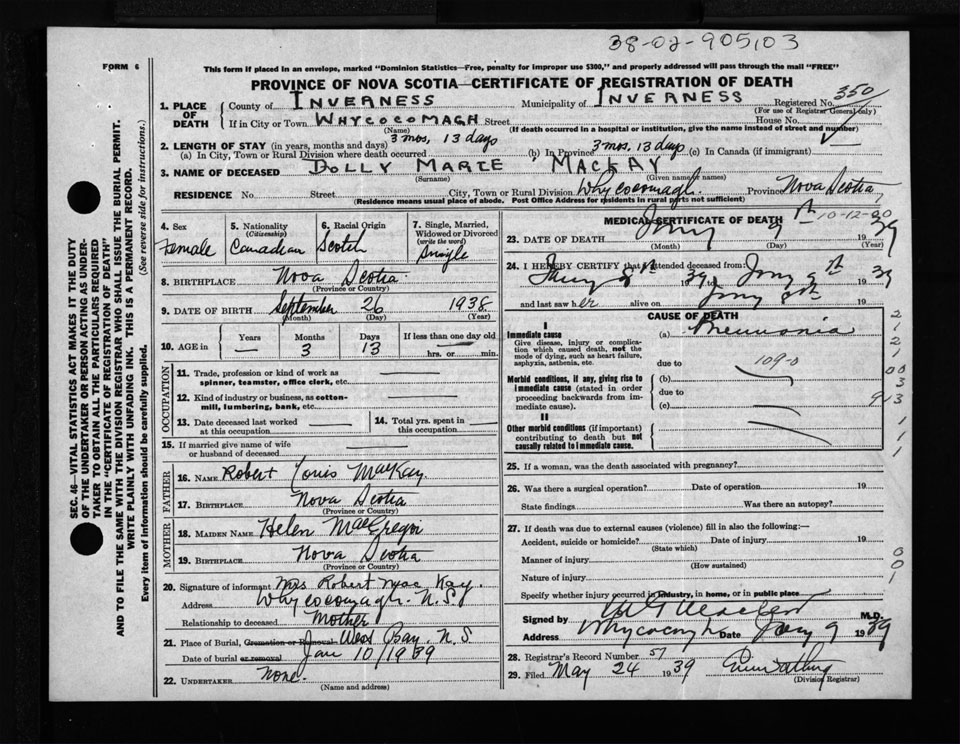 38-02-905103
FORM 6
This form if placed in an envelope, marked "Dominion Statistics—Free, penalty for improper use $300," and properly addressed will pass through the mail "FREE"
PROVINCE OF NOVA SCOTIA—CERTIFICATE OF REGISTRATION OF DEATH
1. PLACE OF DEATH County of INVERNESS Municipality of INVERNESS Registered No. 350
(For use of Registrar General only)
If in City or Town WHYCOCOMAGH Street House No.
(Name) (If death occurred in a hospital or institution, give the name instead of street and number)
2. LENGTH OF STAY (in years, months and days)
(a) In City, Town or Rural Division where death occurred 3 mos, 13 days (b) In Province 3 mos, 13 days (c) In Canada (if immigrant)
3. NAME OF DECEASED DOLLY MARIE MACKAY
(Surname) (Given name or names)
RESIDENCE No. Street City, Town or Rural Division Whycocomagh Province Nova Scotia
(Residence means usual place of abode. Post Office Address for residents in rural parts not sufficient)
4. Sex Female
5. Nationality (Citizenship) Canadian
6. Racial Origin Scotch
7. Single, Married, Widowed or Divorced (write the word) Single
8. BIRTHPLACE Nova Scotia
(Province or Country)
9. DATE OF BIRTH September 26 1938
(Month) (Day) (Year)
10. AGE in Years — Months 3 Days 13 If less than one day hrs. or min.
OCCUPATION
11. Trade, profession or kind of work as spinner, teamster, office clerk, etc.
12. Kind of industry or business, as cotton-mill, lumbering, bank, etc.
13. Date deceased last worked at this occupation
14. Total yrs. spent in this occupation
15. If married give name of wife or husband of deceased
FATHER
16. NAME Robert Louis MacKay
17. BIRTHPLACE Nova Scotia
(Province or Country)
MOTHER
18. MAIDEN NAME Helen MacGregor
19. BIRTHPLACE Nova Scotia
(Province or Country)
20. Signature of informant Mrs Robert MacKay.
Address Whycocomagh. N.S.
Relationship to deceased Mother
21. Place of Burial, Cremation or Removal West Bay. N.S
Date of burial or removal Jan 10/1939
22. UNDERTAKER None.
(Name and address)
MEDICAL CERTIFICATE OF DEATH
10-12-90
23. DATE OF DEATH Jany 9th 1939
(Month) (Day) (Year)
24. I HEREBY CERTIFY that I attended deceased from:
Jany 8th 39 to Jany 9th 1939
and last saw her alive on Jany 8th 19
CAUSE OF DEATH
I
Immediate cause
Give disease, injury or complication which caused death, not the mode of dying, such as heart failure, asphyxia, asthenia, etc.
(a) Pneumonia
due to 109-0
Morbid conditions, if any, giving rise to immediate cause (stated in order proceeding backwards from immediate cause).
(b)
due to
(c)
II
Other morbid conditions (if important) contributing to death but not causally related to immediate cause.
2
1
2
1
00
3
913
1
1
1
25. If a woman, was the death associated with pregnancy?
26. Was there a surgical operation? Date of operation 19
State findings Was there an autopsy?
27. If death was due to external causes (violence) fill in also the following:—
Accident, suicide or homicide? Date of injury 19
(State which)
Manner of injury
(How sustained)
Nature of injury
Specify whether injury occurred in industry, in home, or in public place
0
0
1
Signed by M.D.
Address Date Jany 9 1939
28. Registrar's Record Number 57
29. Filed May 24 1939
(Division Registrar)
SEC. 46—VITAL STATISTICS ACT MAKES IT THE DUTY
OF THE UNDERTAKER OR PERSON ACTING AS UNDERTAKER TO OBTAIN ALL THE PARTICULARS REQUIRED
IN THE "CERTIFICATE OF REGISTRATION OF DEATH"
AND TO FILE THE SAME WITH THE DIVISION REGISTRAR WHO SHALL ISSUE THE BURIAL PERMIT.
WRITE PLAINLY WITH UNFADING INK. THIS IS A PERMANENT RECORD.
Every item of information should be carefully supplied. (See reverse side for instructions.)